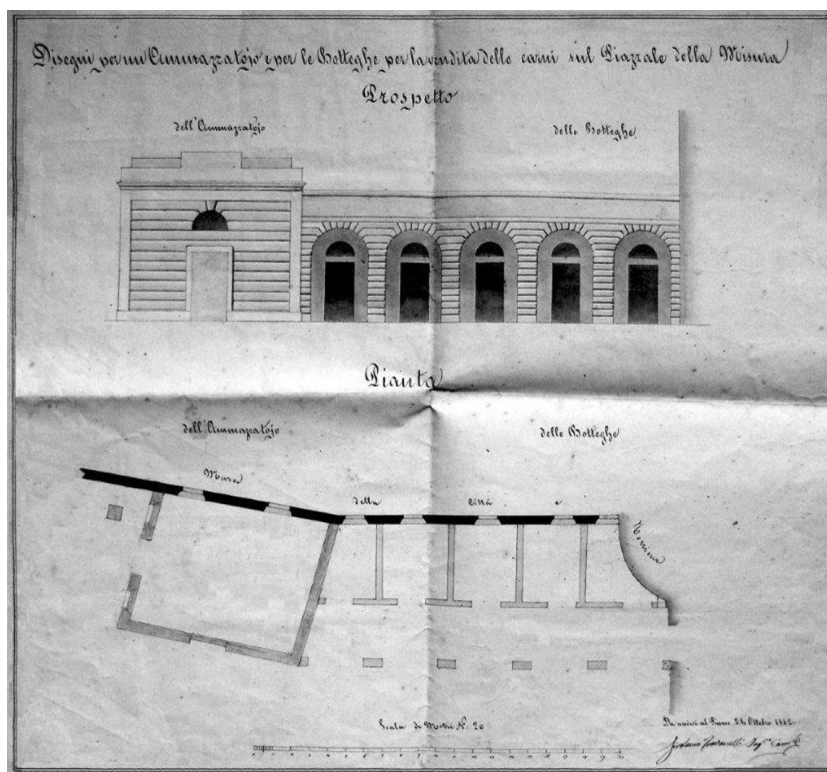 Disegni per un Ammazzatojo e per le Botteghe per la vendita delle carni sul Piazzale della Misura
Prospetto
dell'Ammazzatojo
delle Botteghe
Pianta
dell'Ammazzatojo
delle Botteghe
Mura della Città e
Scala di Metri N. 20
Ottobre